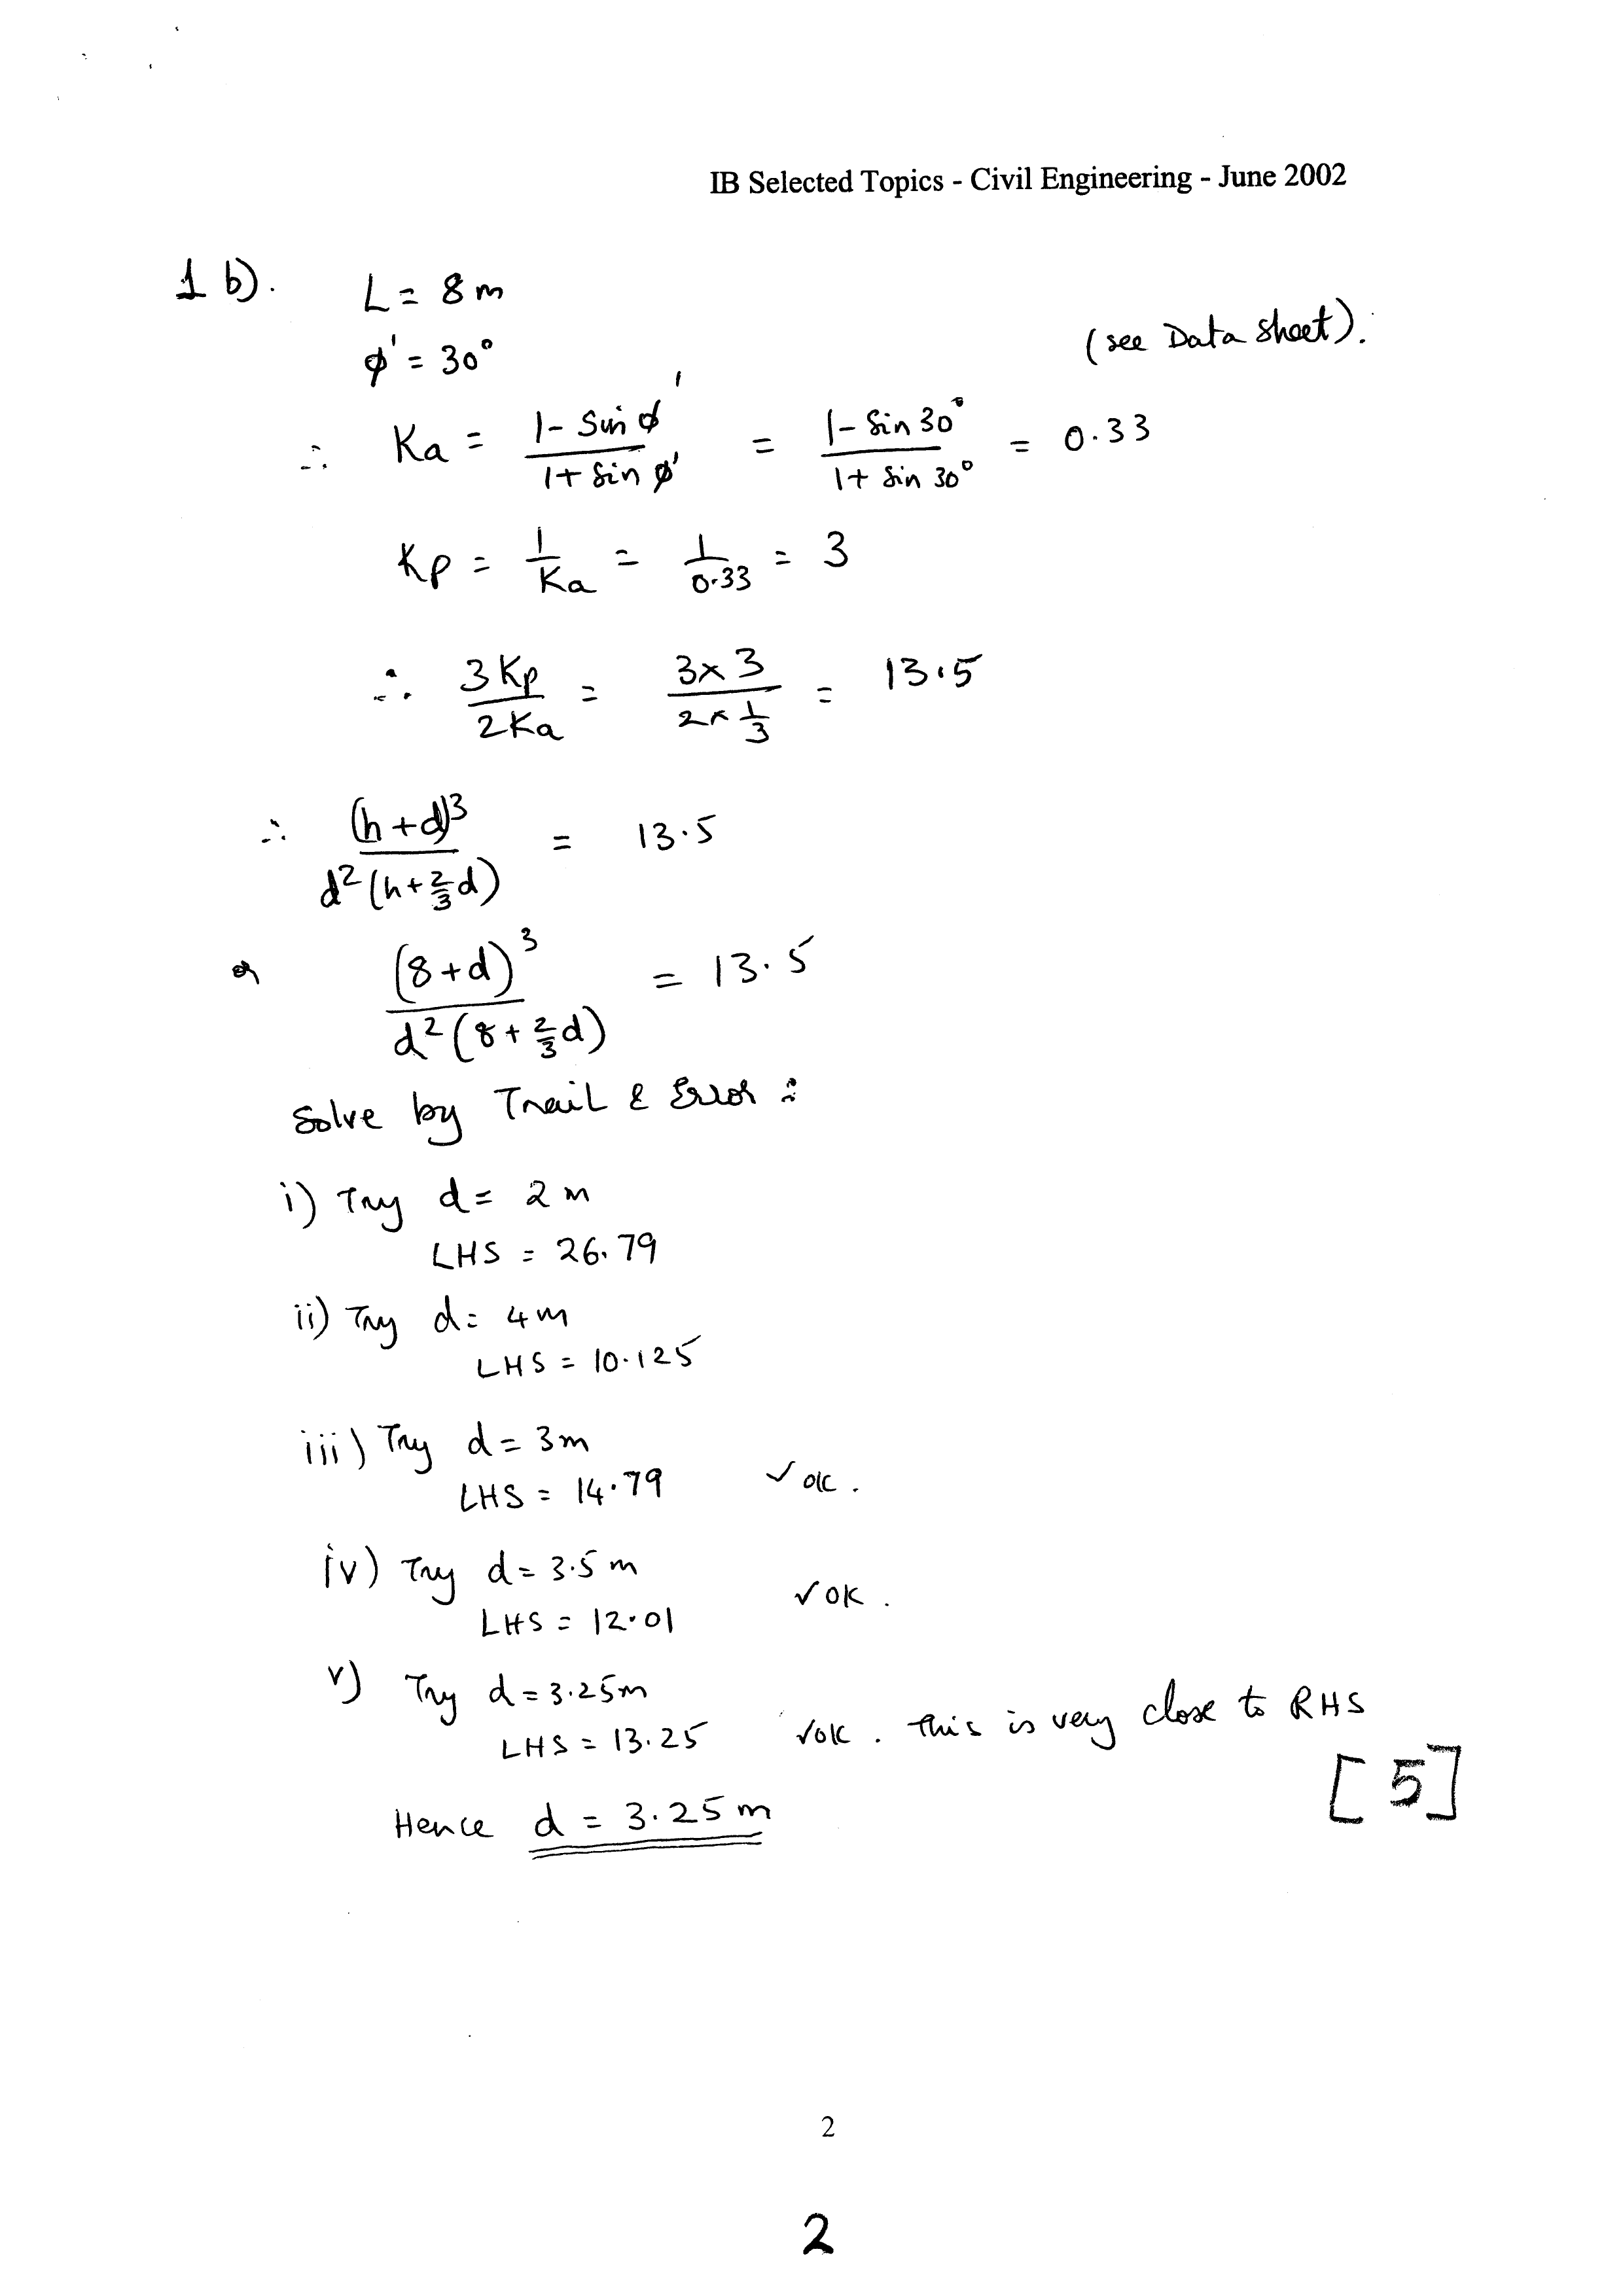 IB Selected Topics - Civil Engineering - June 2002
1 b). L = 8 m
(see Data sheet).
φ' = 30°
∴ Ka = (1 - Sin φ') / (1 + Sin φ') = (1 - Sin 30°) / (1 + Sin 30°) = 0.33
Kp = 1/Ka = 1/0.33 = 3
∴ 3Kp / 2Ka = (3 × 3) / (2 × 1/3) = 13.5
∴ (h+d)³ / d²(h+⅔d) = 13.5
or (8+d)³ / d²(8+⅔d) = 13.5
Solve by Trail & Error :
i) Try d = 2 m
LHS = 26.79
ii) Try d = 4 m
LHS = 10.125
iii) Try d = 3m
LHS = 14.79 ✓ ok.
iv) Try d = 3.5 m
LHS = 12.01 ✓ OK.
v) Try d = 3.25m
LHS = 13.25 ✓ok. This is very close to RHS
[5]
Hence d = 3.25 m
2
2